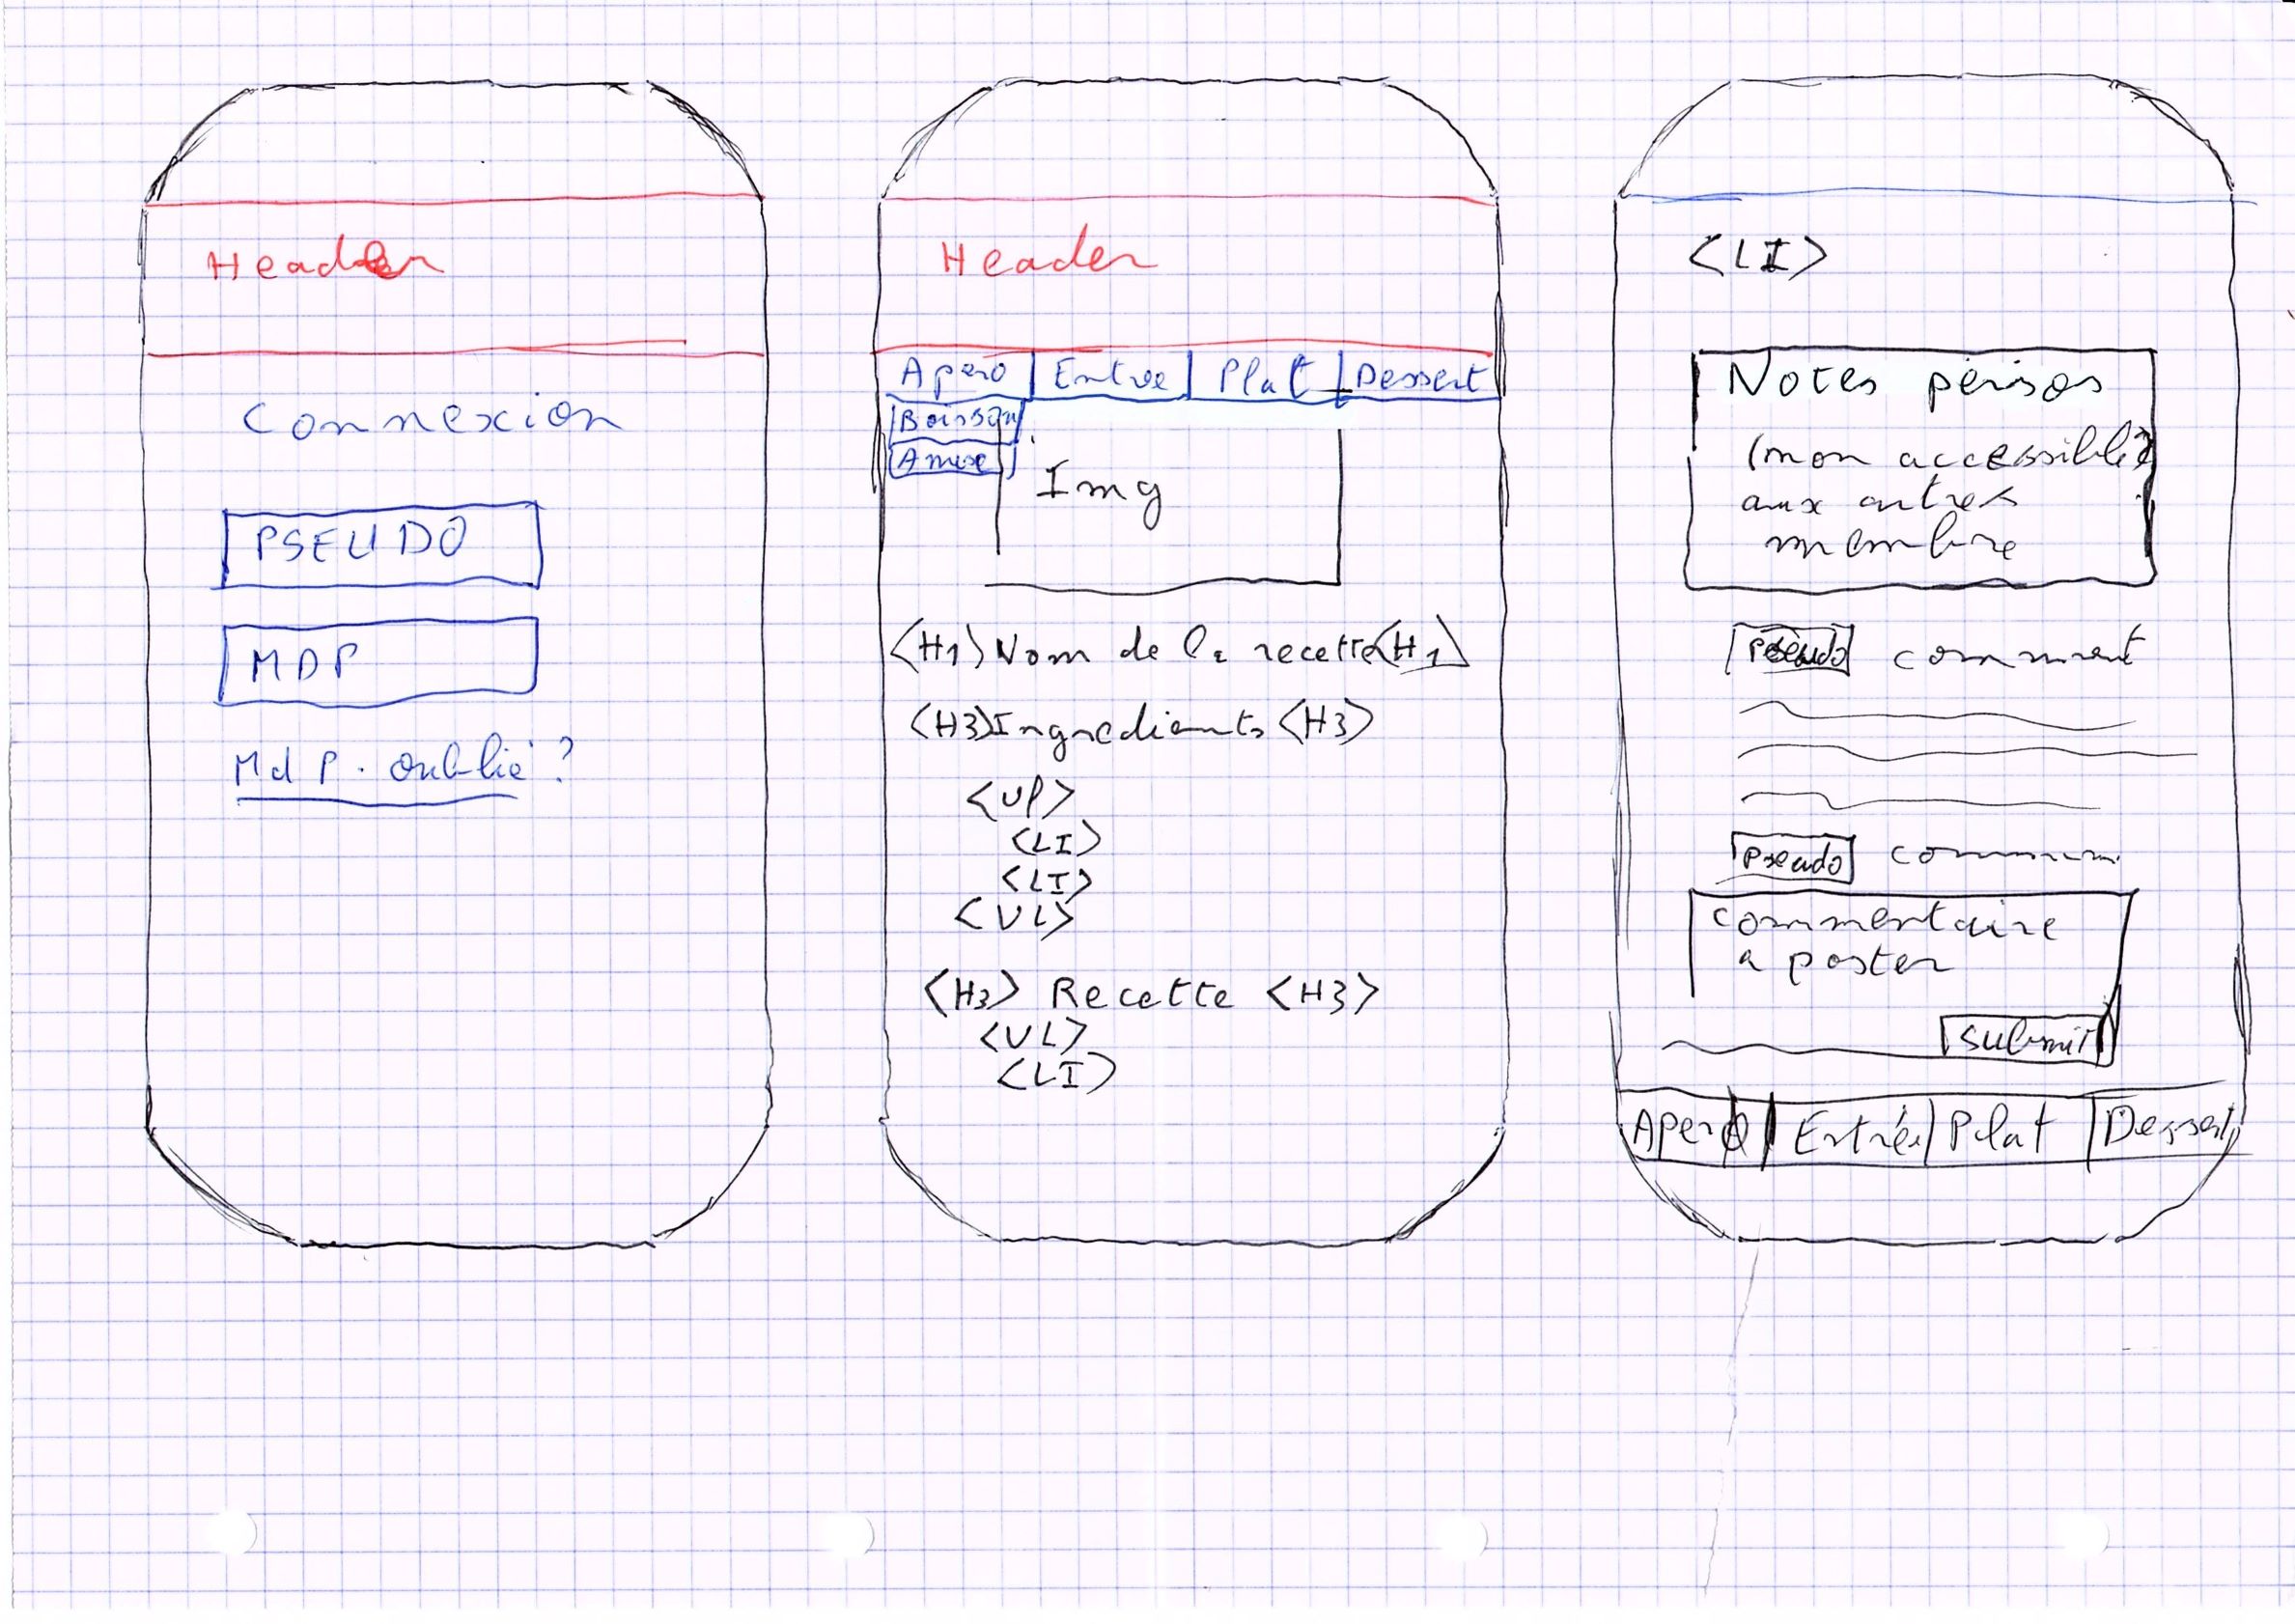 Header
Connexion
PSEUDO
MDP
MdP. oublié ?
Header
Apero Entree Plat Dessert
Boisson
Amuse
Img
<H1> Nom de la recette <H1>
<H3> Ingredients <H3>
<Ul>
<LI>
<LI>
<UL>
<H3> Recette <H3>
<UL>
<LI>
<LI>
Notes persos
(non accessible
aux autres
membre
Pseudo comment
Pseudo comm
commentaire
a poster
submit
Apero Entrée Plat Dessert